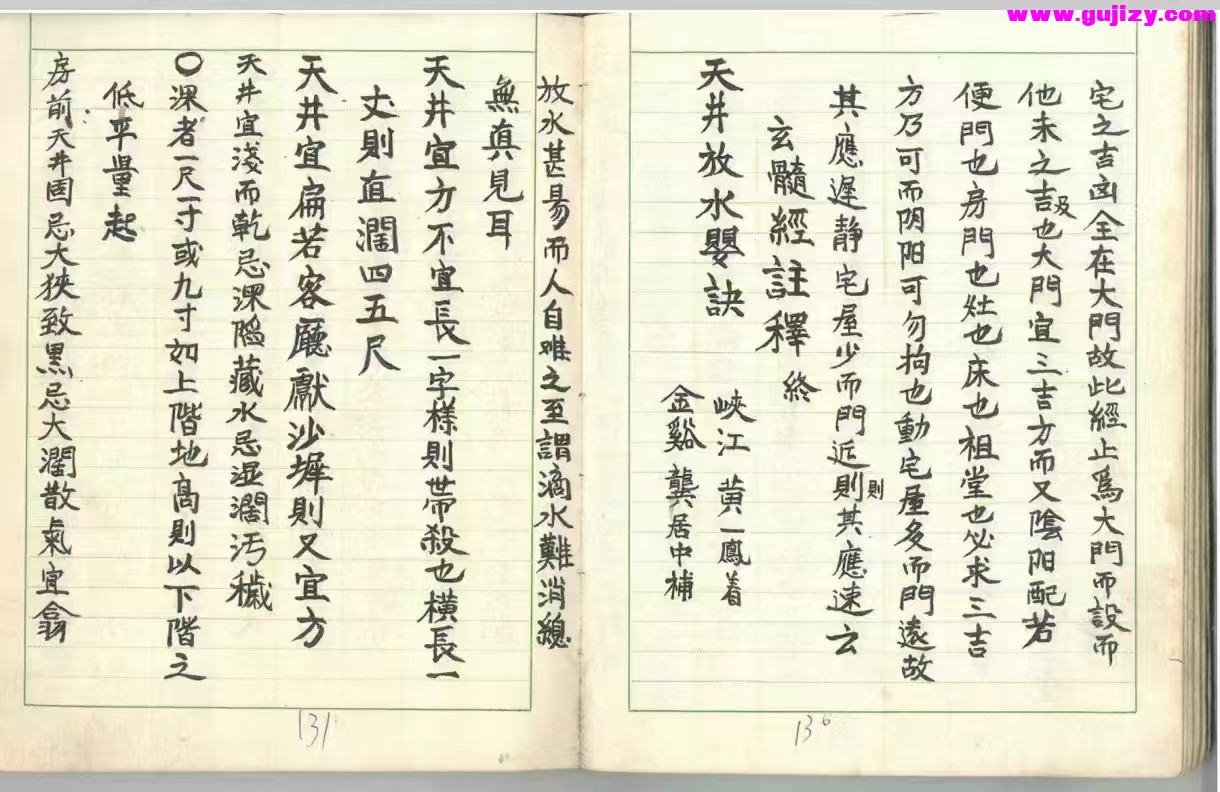 www.gujizy.com
宅之吉凶全在大門故此經止爲大門而設而
他未之吉及也大門宜三吉方而又陰阳配若
便門也房門也灶也床也祖堂也必求三吉
方乃可而阴阳可勿拘也動宅屋多而門遠故
其應遲静宅屋少而門近則則其應速云
玄髓經註釋終
天井放水嬰訣
峽江黄一鳳着
金谿龔居中補
136
放水甚昜而人自难之至謂滴水難消緫
無真見耳
天井宜方不宜長一字樣則带殺也横長一
丈則直濶四五尺
天井宜扁若客廳獻沙墀則又宜方
天井宜淺而乾忌深陷藏水忌湿濶汚穢
〇深者一尺一寸或九寸如上階地高則以下階之
低平量起
房前天井固忌大狹致黑忌大濶散氣宜翕
131